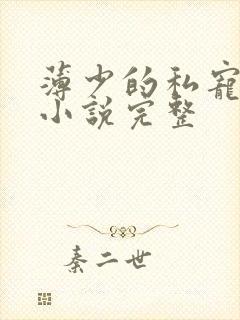 薄少的私寵
小說完整
秦二世